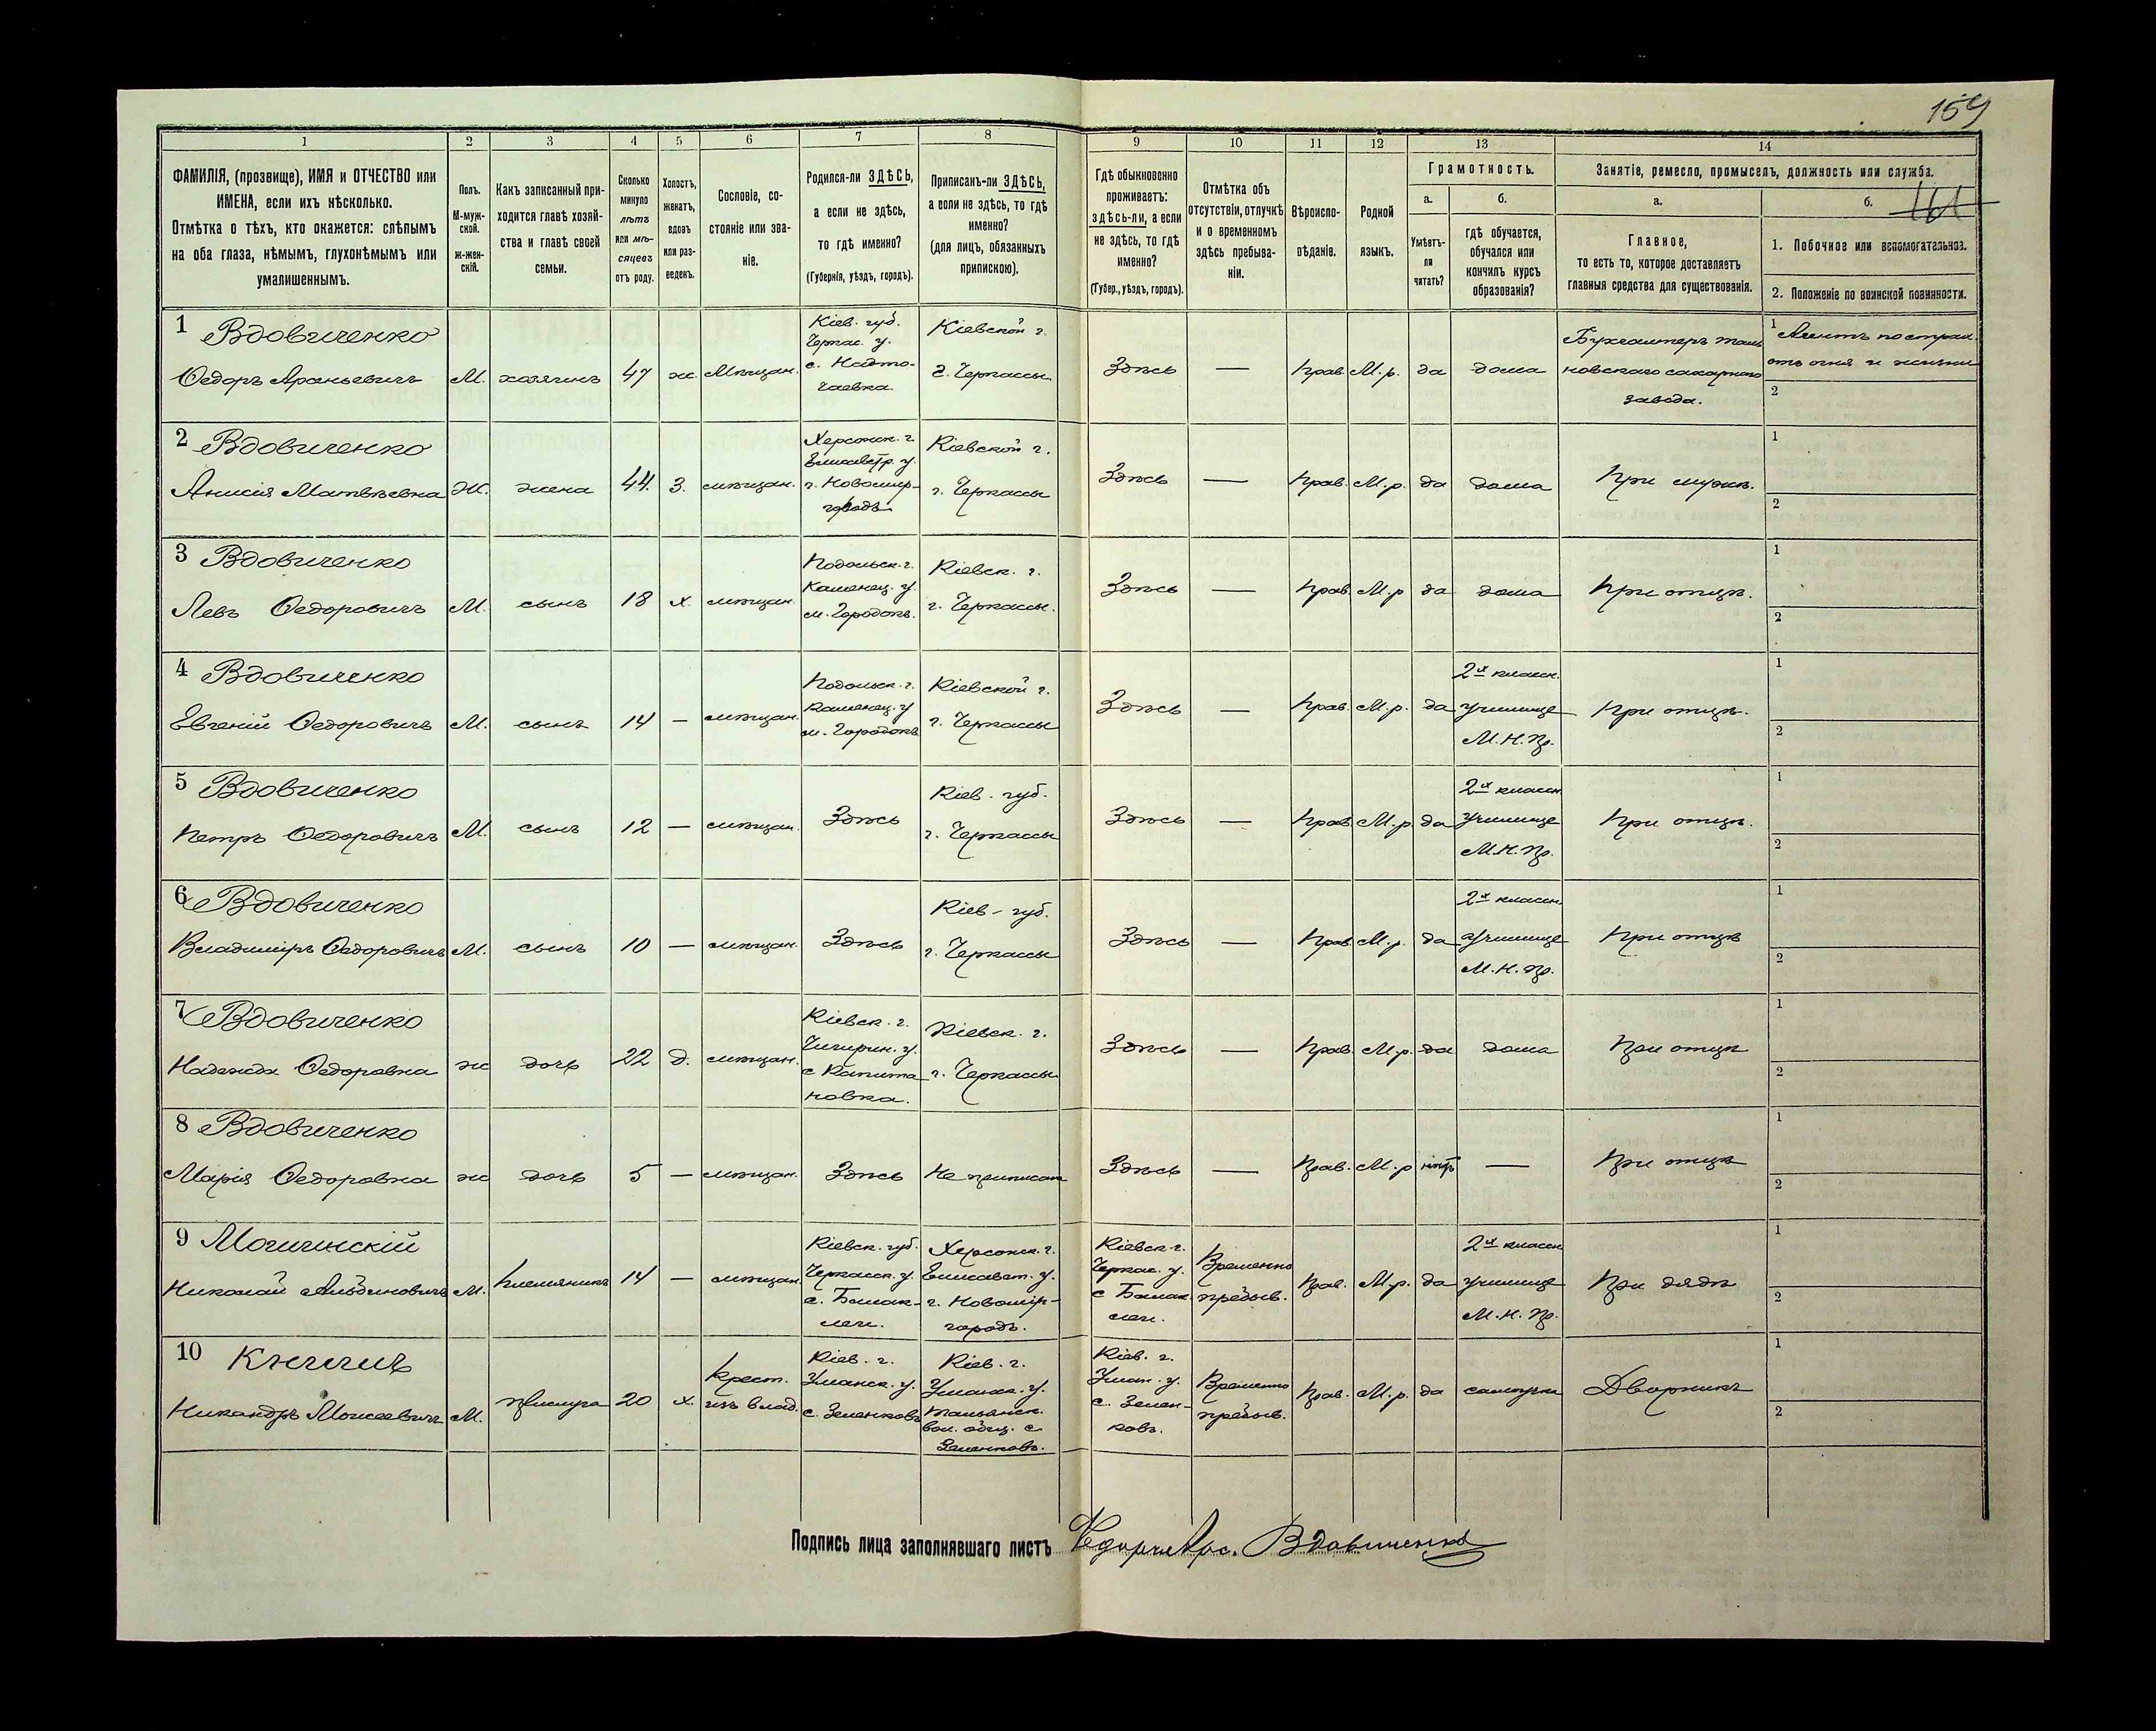 159
161
1 2 3 4 5 6 7 8 9 10 11 12 13 14
ФАМИЛІЯ, (прозвище), ИМЯ и ОТЧЕСТВО или
ИМЕНА, если ихъ нѣсколько.
Отмѣтка о тѣхъ, кто окажется: слѣпымъ
на оба глаза, нѣмымъ, глухонѣмымъ или
умалишеннымъ.
Полъ.
М-муж-
ской.
ж-жен-
скій.
Какъ записанный при-
ходится главѣ хозяй-
ства и главѣ своей
семьи.
Сколько
минуло
лѣтъ
или мѣ-
сяцевъ
отъ роду.
Холостъ,
женатъ,
вдовъ
или раз-
веденъ.
Сословіе, со-
стояніе или зва-
ніе.
Родился-ли ЗДѢСЬ,
а если не здѣсь,
то гдѣ именно?
(Губернія, уѣздъ, городъ).
Приписанъ-ли ЗДѢСЬ,
а если не здѣсь, то гдѣ
именно?
(для лицъ, обязанныхъ
припискою).
Гдѣ обыкновенно
проживаетъ:
здѣсь-ли, а если
не здѣсь, то гдѣ
именно?
(Губер., уѣздъ, городъ).
Отмѣтка объ
отсутствіи, отлучкѣ
и о временномъ
здѣсь пребыва-
ніи.
Вѣроиспо-
вѣданіе.
Родной
языкъ.
Грамотность.
а.
Умѣетъ-
ли
читать?
б.
гдѣ обучается,
обучался или
кончилъ курсъ
образованія?
Занятіе, ремесло, промыселъ, должность или служба.
а.
Главное,
то есть то, которое доставляетъ
главныя средства для существованія.
б.
1. Побочное или вспомогательное.
2. Положеніе по воинской повинности.
1 Вдовиченко
Ѳедоръ Арсеньевичъ
М.
хозяинъ
47
ж.
Мѣщан.
Кіев. губ.
Черкас. у.
с. Надто-
чаевка.
Кіевской г.
г. Черкассы
Здѣсь
—
Прав.
М.р.
да
дома
Бухгалтеръ Таль
новскаго сахарнаго
завода.
1 Агентъ по страх.
отъ огня и жизни
2
2 Вдовиченко
Анисія Матвѣевна
Ж.
жена
44.
З.
мѣщан.
Херсонск. г.
Елисаветр. у.
г. Новомир-
городъ
Кіевской г.
г. Черкассы
Здѣсь
—
Прав.
М.р.
да
дома
При мужѣ.
1
2
3 Вдовиченко
Левъ Ѳедоровичъ
М.
сынъ
18
х.
мѣщан.
Подольск. г.
Каменец. у.
м. Городокъ.
Кіевск. г.
г. Черкассы.
Здѣсь
—
Прав.
М.р
да
дома
При отцѣ.
1
2
4 Вдовиченко
Евгеній Ѳедоровичъ
М.
сынъ
14
—
мѣщан.
Подольск. г.
Каменец. у
м. Городокъ
Кіевской г.
г. Черкассы
Здѣсь
—
Прав.
М.р.
да
2х классн.
училище
М.Н.Пр.
При отцѣ.
1
2
5 Вдовиченко
Петръ Ѳедоровичъ
М.
сынъ
12
—
мѣщан.
Здѣсь
Кіев. губ.
г. Черкассы
Здѣсь
—
Прав.
М.р.
да
2х классн.
училище
М.Н.Пр.
При отцѣ.
1
2
6 Вдовиченко
Владиміръ Ѳедоровичъ
М.
сынъ
10
—
мѣщан.
Здѣсь
Кіев. губ.
г. Черкассы
Здѣсь
—
Прав.
М.р.
да
2х классн.
училище
М.Н.Пр.
При отцѣ
1
2
7 Вдовиченко
Надежда Ѳедоровна
ж
дочь
22
д.
мѣщан.
Кіевск. г.
Чигирин. у.
с Капита
новка.
Кіевск. г.
г. Черкассы
Здѣсь
—
Прав.
М.р.
да
дома
При отцѣ
1
2
8 Вдовиченко
Марія Ѳедоровна
ж
дочь
5
—
мѣщан.
Здѣсь
Не приписан
Здѣсь
—
Прав.
М.р
нѣтъ
—
При отцѣ
1
2
9
Николай
М.
племянникъ
14
—
мѣщан.
Кіевск. губ.
Черкасск. у.
с. Балак-
леи.
Херсонск. г.
Елисавет. у.
г. Новомир-
городъ.
Кіевск г.
Черкас. у.
с Балак
леи.
Временно
пребыв.
Прав.
М.р.
да
2х классн
училище
М.Н.Пр.
При дядѣ
1
2
10
Никандръ Моисеевичъ
М.
прислуга
20
х.
Крест.
изъ влад.
Кіев. г.
Уманск. у.
с. Зеленковъ
Кіев. г.
Уманск. у.
Тальянск.
вол. общ. с.
Зеленковъ.
Кіев. г.
Уман. у.
с. Зелен-
ковъ.
Временно
пребыв.
Прав.
М.р.
да
самоучка
Дворникъ
1
2
Подпись лица заполнявшаго листъ Ѳедоръ Арс. Вдовиченко